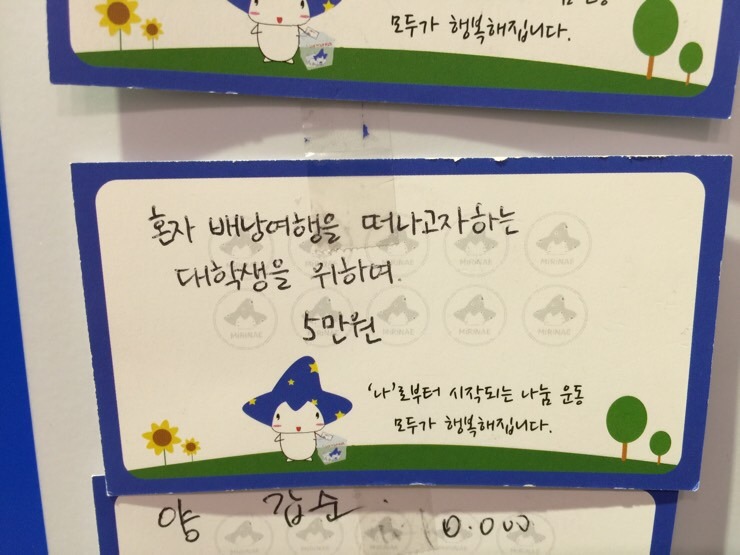 모두가 행복해집니다.
혼자 배낭여행을 떠나고자하는
대학생을 위하여.
5만원
'나'로부터 시작되는 나눔 운동
모두가 행복해집니다.
양 갑순 10.000